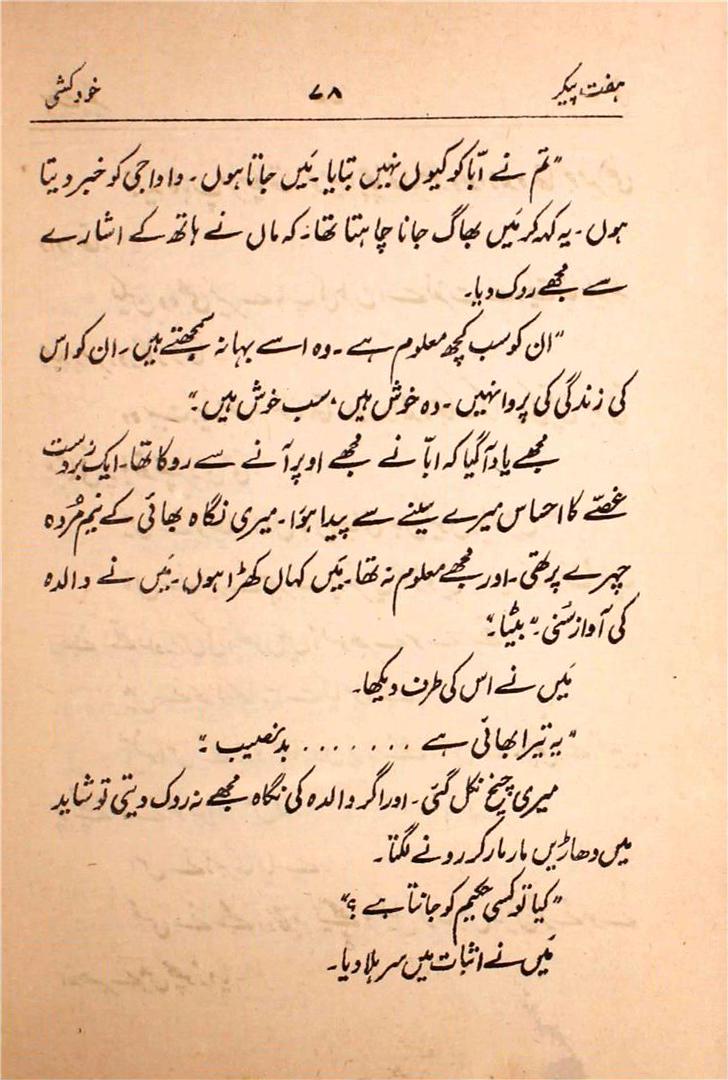 ہفت پیکر ۷۸ خودکشی
"تم نے ابّا کو کیوں نہیں بتایا۔ مَیں جاتا ہوں۔ داداجی کو خبر دیتا
ہوں۔ یہ کہہ کر مَیں بھاگ جانا چاہتا تھا۔ کہ ماں نے ہاتھ کے اشارے
سے مجھے روک دیا۔
"ان کو سب کچھ معلوم ہے۔ وہ اسے بہانہ سمجھتے ہیں۔ ان کو اس
کی زندگی کی پروا نہیں۔ وہ خوش ہیں، سب خوش ہیں۔"
مجھے یاد آگیا کہ ابّا نے مجھے اوپر آنے سے روکا تھا۔ ایک زبردست
غصّے کا احساس میرے سینے سے پیدا ہوَا۔ میری نگاہ بھائی کے نیم مُردہ
چہرے پر تھی۔ اور مجھے معلوم نہ تھا۔ مَیں کہاں کھڑا ہوں۔ مَیں نے والدہ
کی آواز سُنی۔ "بیٹا۔"
مَیں نے اس کی طرف دیکھا۔
"یہ تیرا بھائی ہے ....... بدنصیب۔"
میری چیخ نکل گئی۔ اور اگر والدہ کی نگاہ مجھے نہ روک دیتی تو شاید
میں دھاڑیں مار مار کر رونے لگتا۔
"کیا تو کسی حکیم کو جانتا ہے؟"
مَیں نے اثبات میں سر ہلا دیا۔